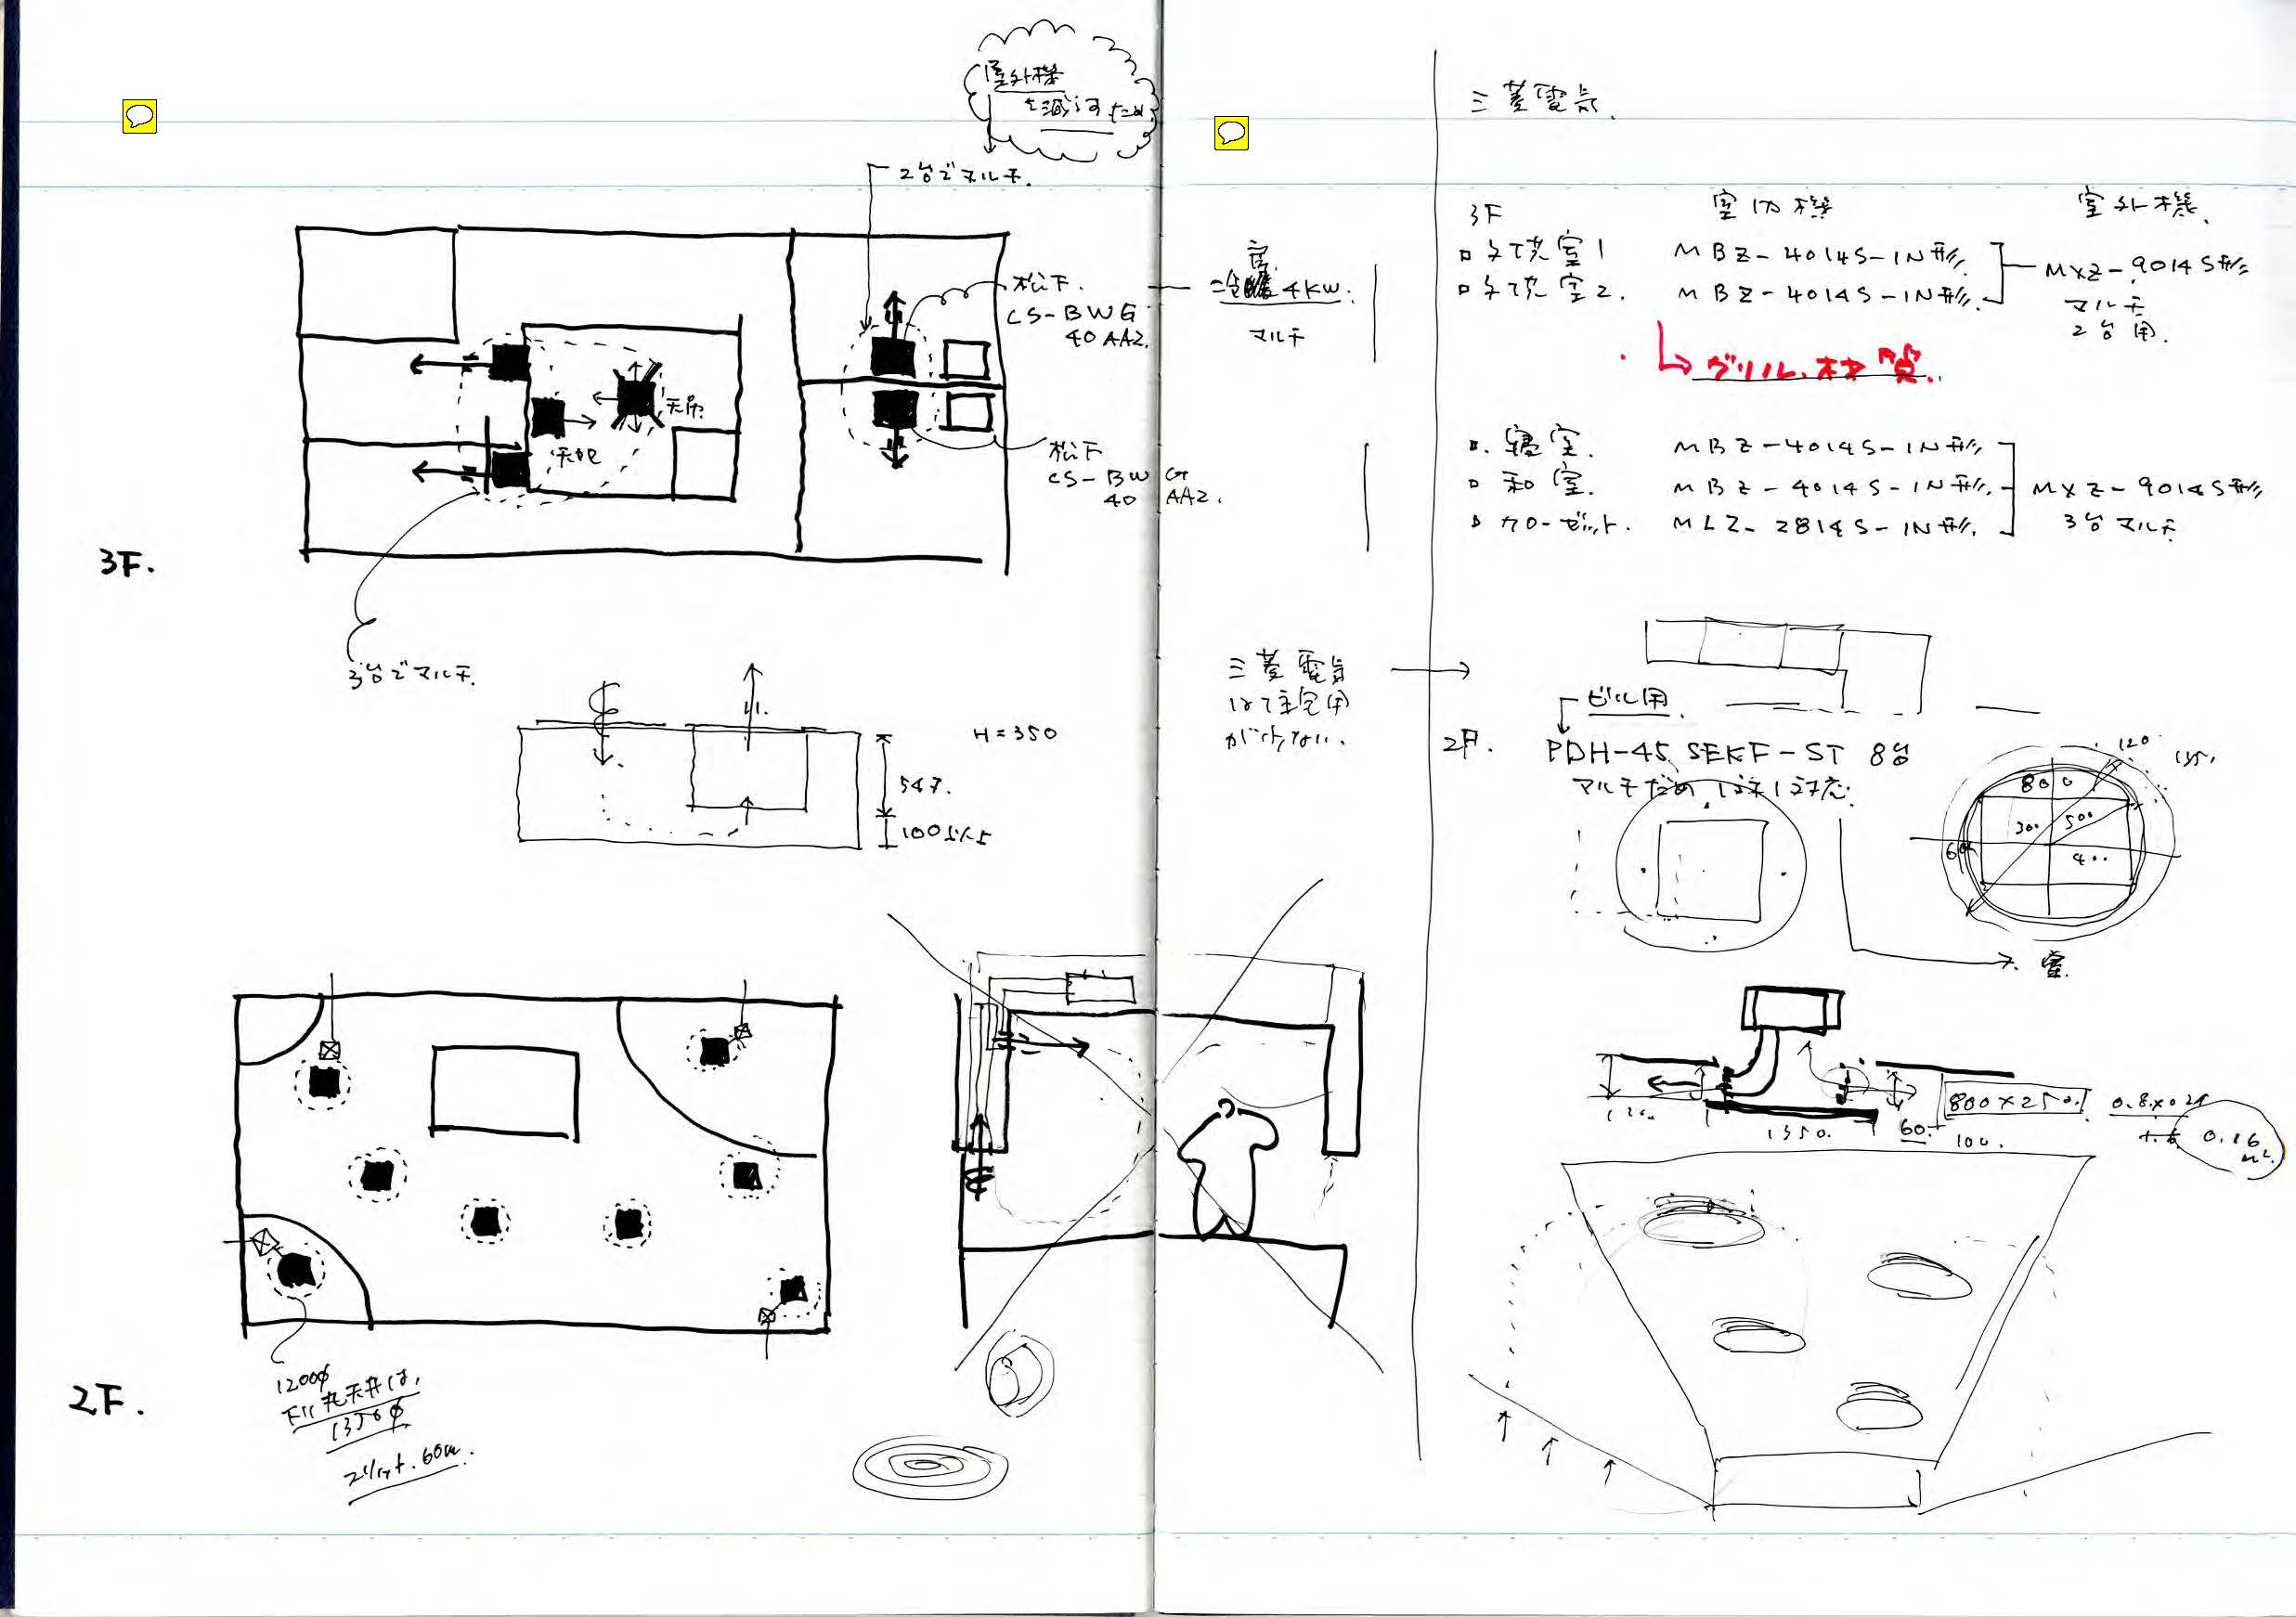 屋外機
を減らすため
2台でマルチ.
松下
CS-BWG
40AA2.
松下
CS-BWG
40 AA2.
天吊.
天地
3F.
3台でマルチ.
H=350
547.
100以上
2F.
1200φ
下り丸天井は,
1350φ
スリット.60m.
4KW.
マルチ
三菱電気
は住宅用
が少ない.
三菱電気.
3F
室内機
室外機.
子供室1
MBZ-4014S-1N形.
MXZ-9014S形
子供室2.
MBZ-4014S-1N形.
マルチ
2台用.
グリル.材質.
寝室.
MBZ-4014S-1N形
和室.
MBZ-4014S-1N形.
MXZ-9014S形
クローゼット.
MLZ-2814S-1N形.
3台マルチ
ビル用.
2F.
PDH-45 SEKF-ST 8台
マルチだめ 1対1対応.
120
135.
800
300
500
600
400
室.
120.
1350.
60.
100.
800×250.
0.16
m².